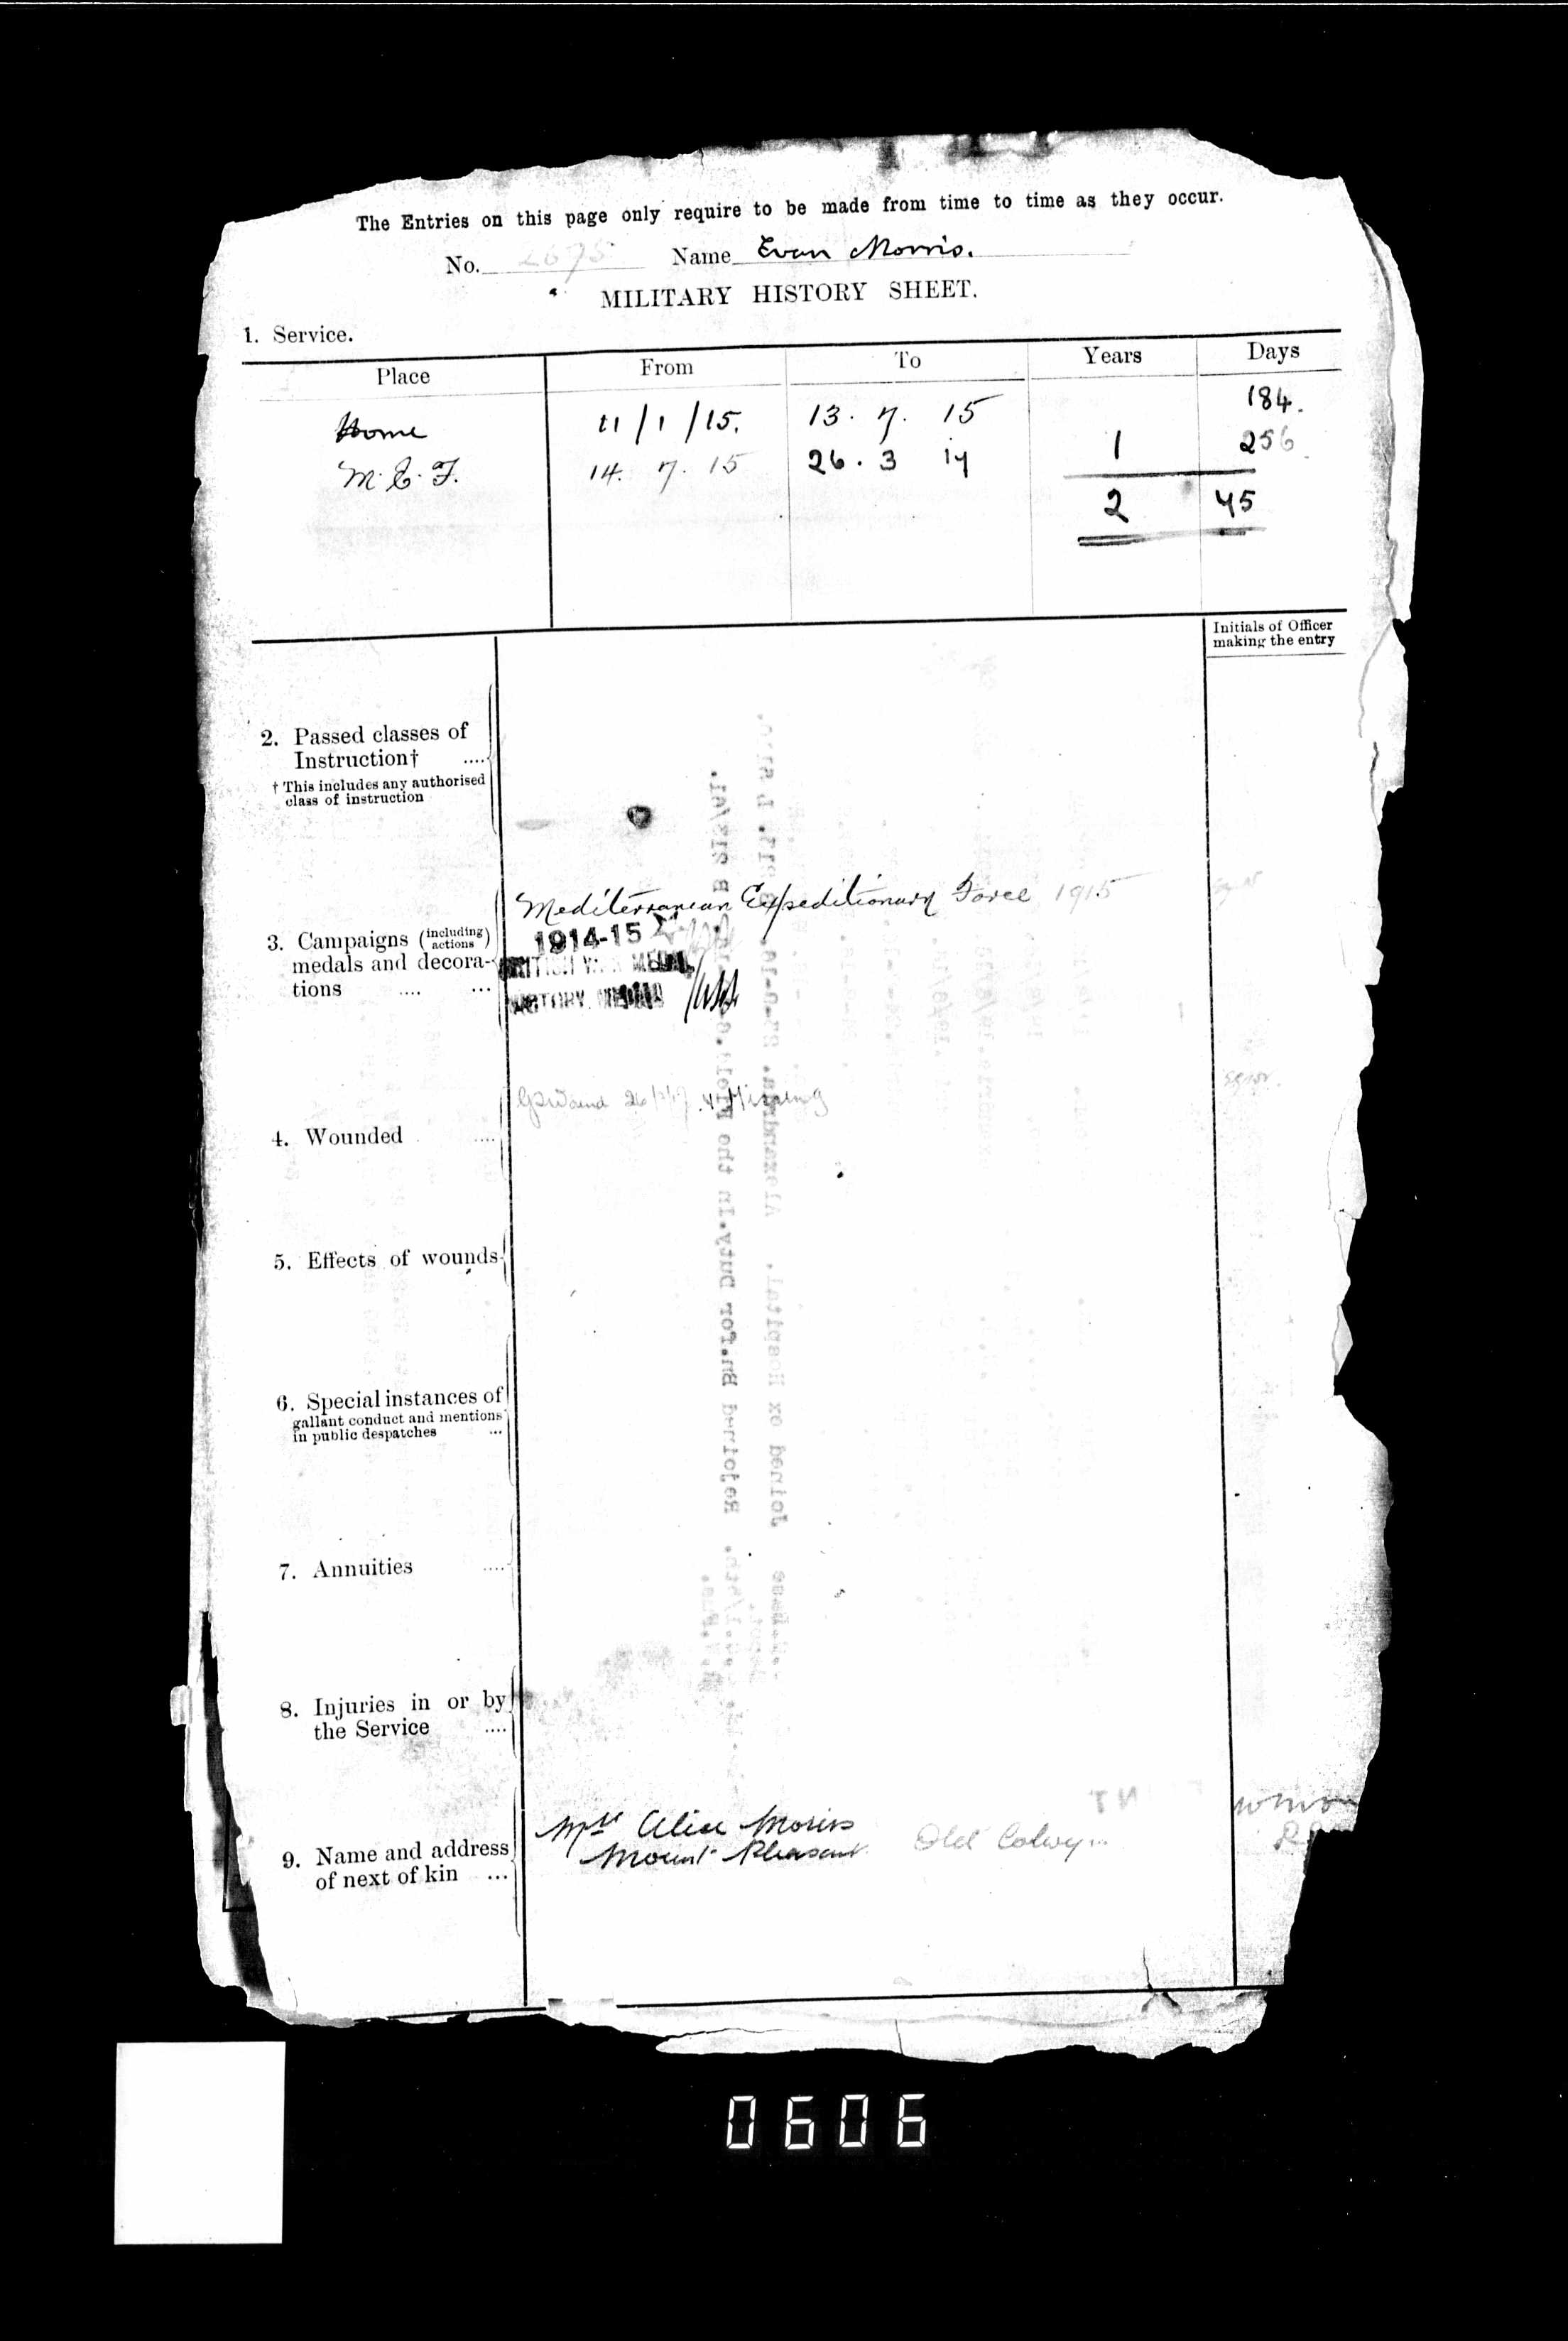 The Entries on this page only require to be made from time to time as they occur.
No. 2675 Name Evan Morris.
MILITARY HISTORY SHEET.
1. Service.
Place From To Years Days
Home 11/1/15. 13. 7. 15 184.
M.E.F. 14. 7. 15 26. 3 17 1 256.
2 75
Initials of Officer making the entry
2. Passed classes of
Instruction† ....
† This includes any authorised
class of instruction
Mediterranean Expeditionary Force 1915
1914-15
3. Campaigns (including actions)
medals and decora-
tions .... ...
BRITISH WAR MEDAL
VICTORY MEDAL
4. Wounded ....
& Missing
5. Effects of wounds
6. Special instances of
gallant conduct and mentions
in public despatches ...
7. Annuities ....
8. Injuries in or by
the Service ....
9. Name and address
of next of kin ...
Mrs Alice Morris
Mount Pleasant Old Colwyn
0606